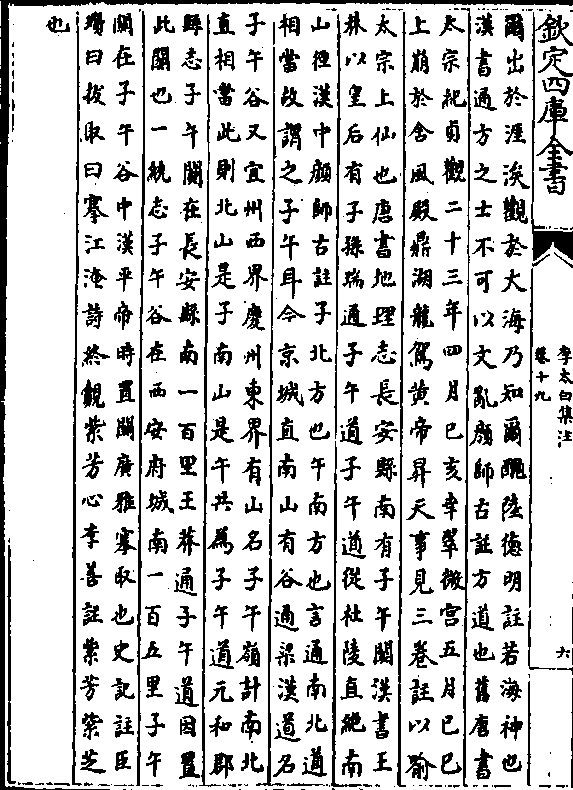 欽定四庫全書
李太白集注
卷十九
六
爾出於涯涘觀於大海乃知爾醜陸德明註若海神也
漢書通方之士不可以文亂顔師古註方道也舊唐書
太宗紀貞觀二十三年四月已亥幸翠微宮五月已巳
上崩於含風殿鼎湖龍駕黃帝昇天事見三卷註以喻
太宗上仙也唐書地理志長安縣南有子午關漢書王
莽以皇后有子孫瑞通子午道子午道從杜陵直絶南
山徑漢中顔師古註子北方也午南方也言通南北道
相當故謂之子午耳今京城直南山有谷通梁漢道名
子午谷又宜州西界慶州東界有山名子午嶺計南北
直相當此則北山是子南山是午共為子午道元和郡
縣志子午關在長安縣南一百里王莽通子午道因置
此關也一統志子午谷在西安府城南一百五里子午
關在子午谷中漢平帝時置關廣雅搴取也史記註臣
瓚曰拔取曰搴江淹詩終觀紫芳心李善註紫芳紫芝
也